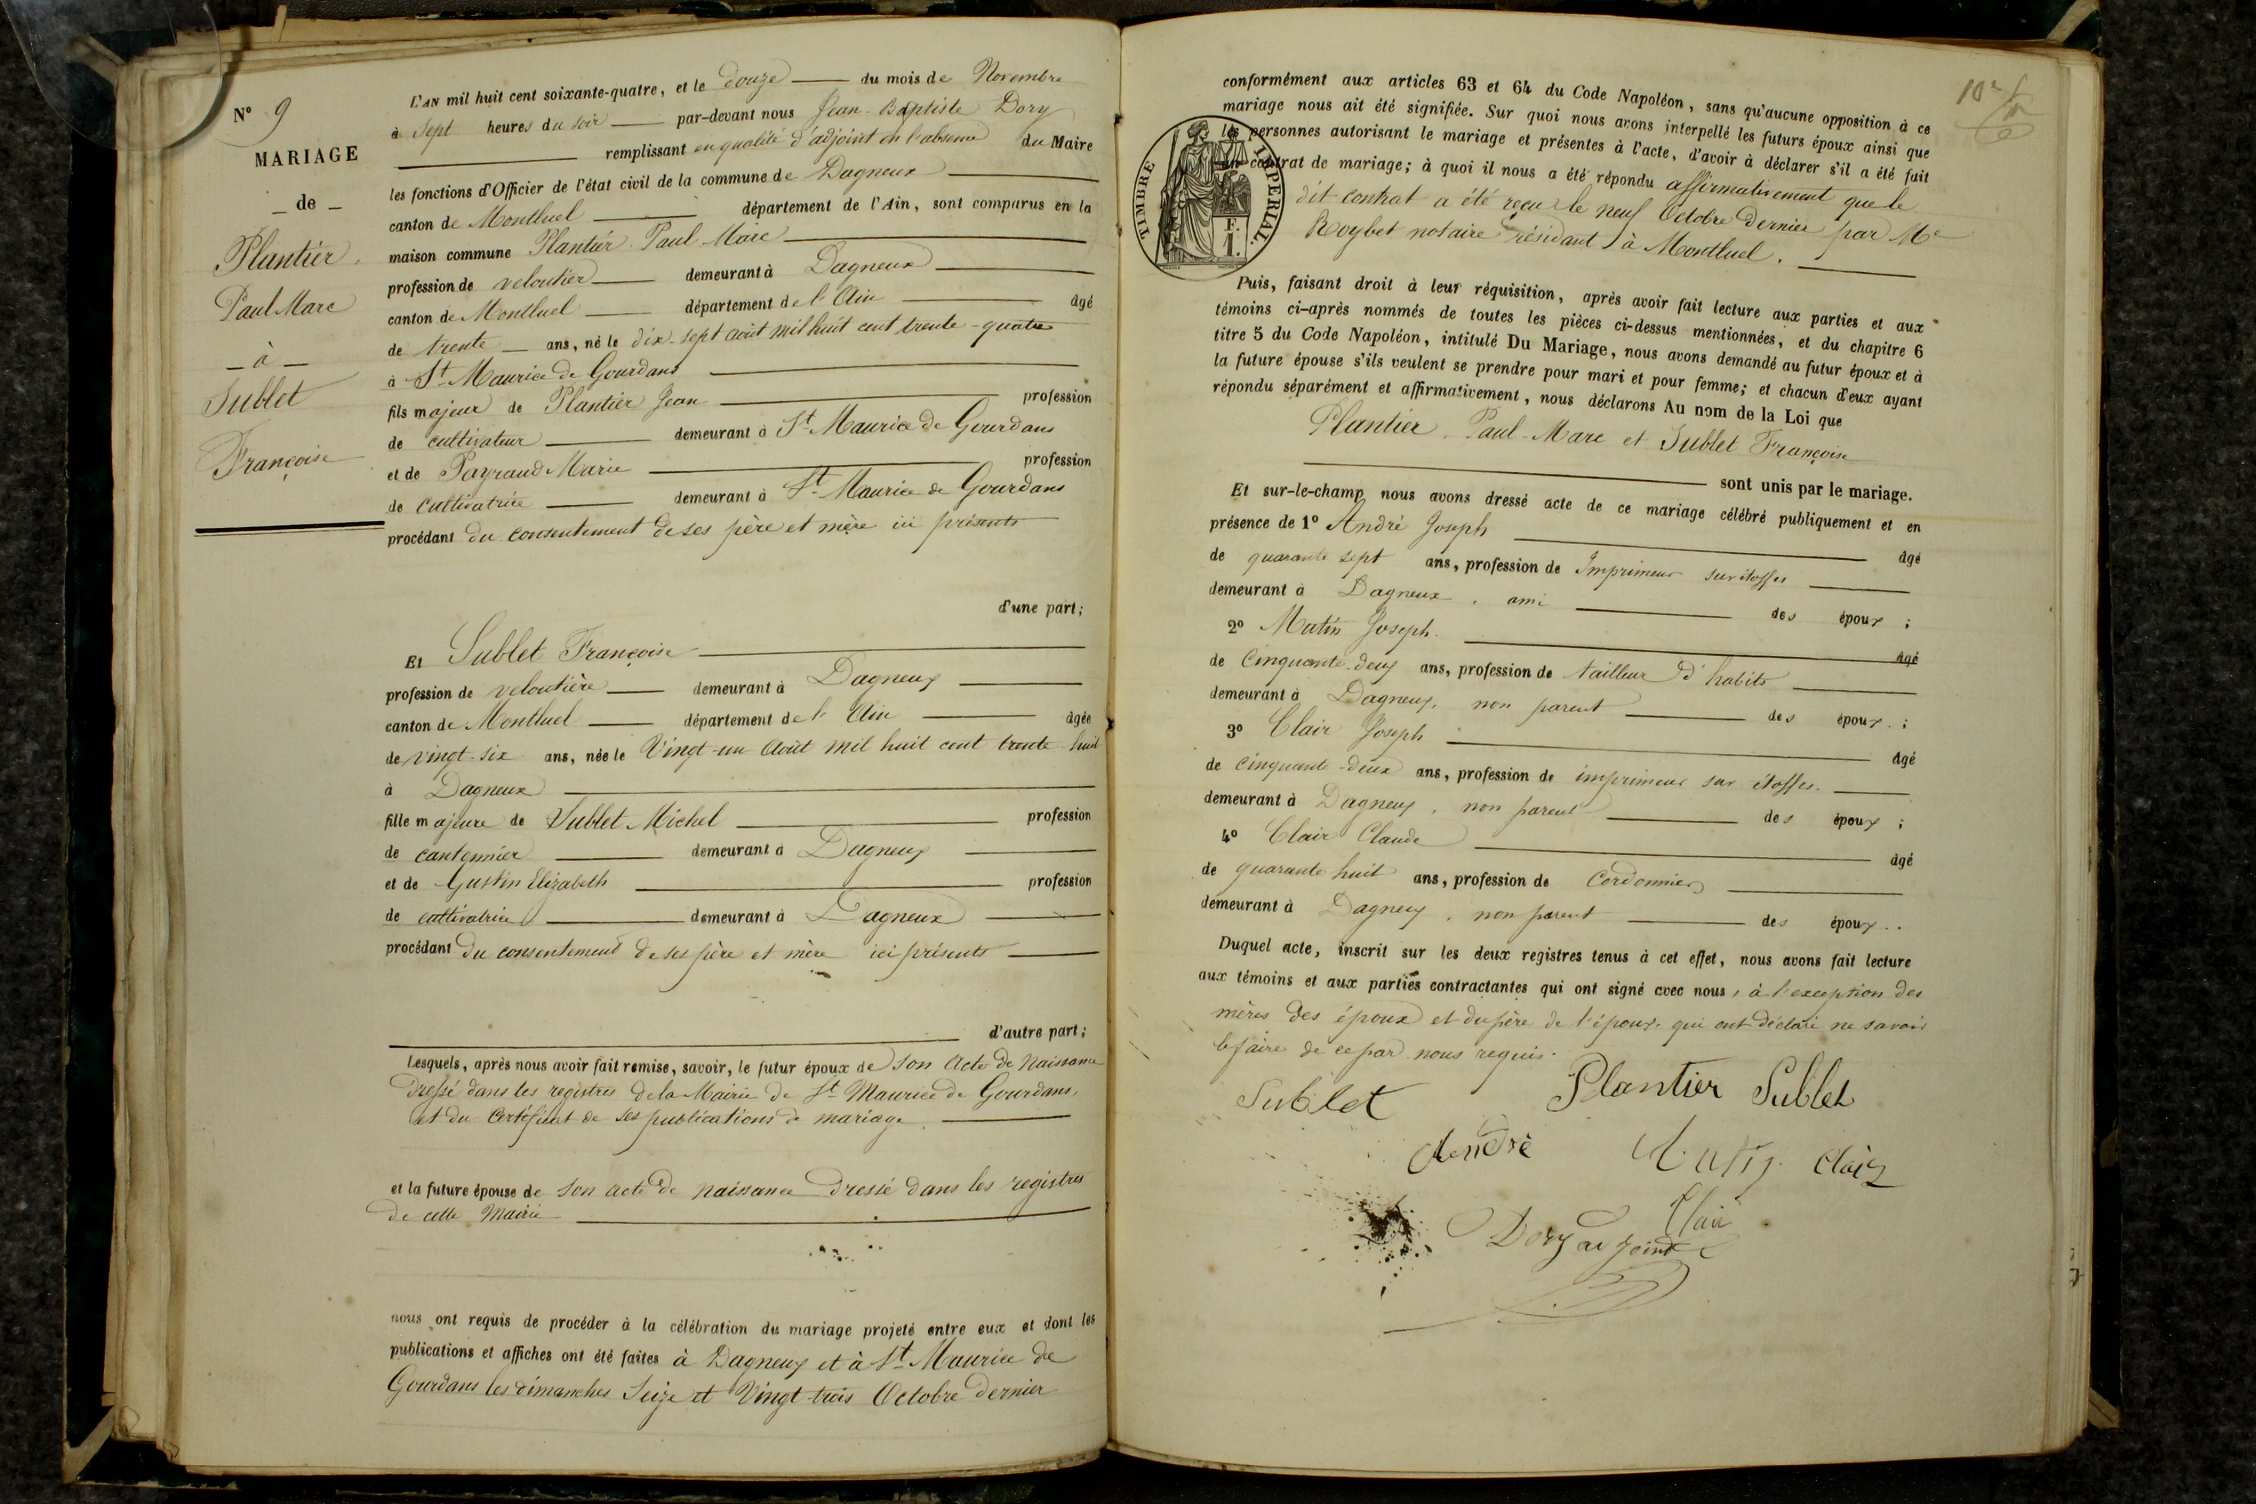 N° 9
MARIAGE
_ de _
Plantier
Paul Marc
_ à _
Sublet
Françoise
L'AN mil huit cent soixante-quatre, et le douze du mois de Novembre
à Sept heures du soir par-devant nous Jean-Baptiste Dory
remplissant en qualité d'adjoint en l'absence du Maire
les fonctions d'Officier de l'état civil de la commune de Dagneux
canton de Montluel département de l'Ain, sont comparus en la
maison commune Plantier Paul-Marc
profession de veloutier demeurant à Dagneux
canton de Montluel département de l'Ain âgé
de trente ans, né le dix-sept août mil huit cent trente-quatre
à St Maurice de Gourdans
fils majeur de Plantier Jean profession
de cultivateur demeurant à St Maurice de Gourdans
et de Payraud Marie profession
de cultivatrice demeurant à St Maurice de Gourdans
procédant du consentement de ses père et mère ici présents
d'une part;
Et Sublet Françoise
profession de veloutière demeurant à Dagneux
canton de Montluel département de l'Ain âgée
de vingt-six ans, née le Vingt-un Août mil huit cent trente-huit
à Dagneux
fille majeure de Sublet Michel profession
de cantonnier demeurant à Dagneux
et de Gustin Elizabeth profession
de cultivatrice demeurant à Dagneux
procédant du consentement de ses père et mère ici présents
d'autre part;
Lesquels, après nous avoir fait remise, savoir, le futur époux de son acte de Naissance
dressé dans les registres de la Mairie de St Maurice de Gourdans,
et du Certificat de ses publications de mariage.
et la future épouse de son acte de naissance dressé dans les registres
de cette Mairie
nous ont requis de procéder à la célébration du mariage projeté entre eux et dont les
publications et affiches ont été faites à Dagneux et à St Maurice de
Gourdans les dimanches Seize et Vingt-trois Octobre dernier
conformément aux articles 63 et 64 du Code Napoléon, sans qu'aucune opposition à ce
mariage nous ait été signifiée. Sur quoi nous avons interpellé les futurs époux ainsi que
les personnes autorisant le mariage et présentes à l'acte, d'avoir à déclarer s'il a été fait
un contrat de mariage; à quoi il nous a été répondu affirmativement que le
dit contrat a été reçu le neuf Octobre dernier par Me
Roybet notaire résidant à Montluel.
TIMBRE IMPERIAL.
F.
1.
Puis, faisant droit à leur réquisition, après avoir fait lecture aux parties et aux
témoins ci-après nommés de toutes les pièces ci-dessus mentionnées, et du chapitre 6
titre 5 du Code Napoléon, intitulé Du Mariage, nous avons demandé au futur époux et à
la future épouse s'ils veulent se prendre pour mari et pour femme; et chacun d'eux ayant
répondu séparément et affirmativement, nous déclarons Au nom de la Loi que
Plantier Paul-Marc et Sublet Françoise
sont unis par le mariage.
Et sur-le-champ nous avons dressé acte de ce mariage célébré publiquement et en
présence de 1° André Joseph âgé
de quarante sept ans, profession de Imprimeur sur étoffes
demeurant à Dagneux, ami des époux;
2° Mutin Joseph. âgé
de Cinquante-deux ans, profession de tailleur d'habits
demeurant à Dagneux, non parent des époux;
3° Clair Joseph âgé
de cinquante-deux ans, profession de imprimeur sur étoffes.
demeurant à Dagneux, non parent des époux;
4° Clair Claude âgé
de quarante huit ans, profession de Cordonnier
demeurant à Dagneux, non parent des époux.
Duquel acte, inscrit sur les deux registres tenus à cet effet, nous avons fait lecture
aux témoins et aux parties contractantes qui ont signé avec nous, à l'exception des
mères des époux et du père de l'époux qui ont déclaré ne savoir
le faire de ce par nous requis.
Sublet Plantier Sublet
André Mutin Clair
Clair
Dory adjoint